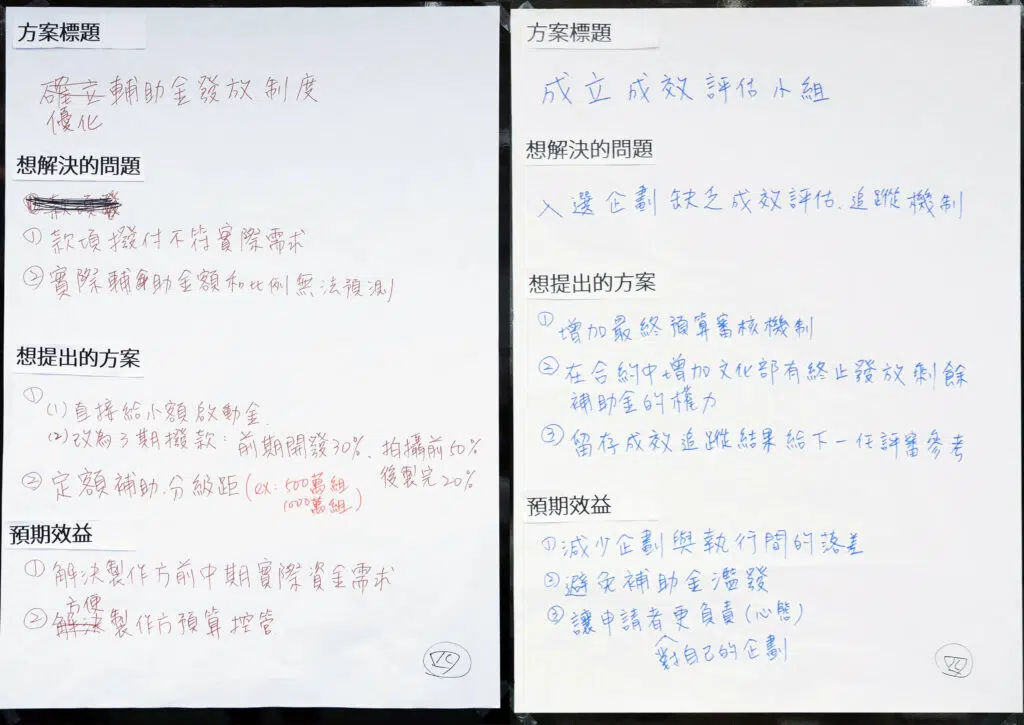 方案標題
確立輔助金發放制度
優化
想解決的問題
①款項撥付不符實際需求
②實際輔助金額和比例無法預測
想提出的方案
①
(1)直接給小額啟動金.
(2)改為3期撥款：前期開發30%、拍攝前50%
後製完20%
②定額補助.分級距(ex:500萬組
1000萬組)
預期效益
①解決製作方前中期實際資金需求
方便
②解決製作方預算控管
方案標題
成立成效評估小組
想解決的問題
入選企劃缺乏成效評估.追蹤機制
想提出的方案
①增加最終預算審核機制
②在合約中增加文化部有終止發放剩餘
補助金的權力
③留存成效追蹤結果給下一任評審參考
預期效益
①減少企劃與執行間的落差
②避免補助金濫發
③讓申請者更負責(心態)
對自己的企劃